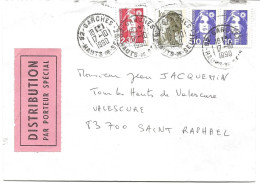 92 GARCHES
17-10
1990
HAUTS-DE-SEINE
DISTRIBUTION
PAR PORTEUR SPÉCIAL
Monsieur Jean JACQUEMIN
Tous les Hauts de Valescure
VALESCURE
83700 SAINT RAPHAEL